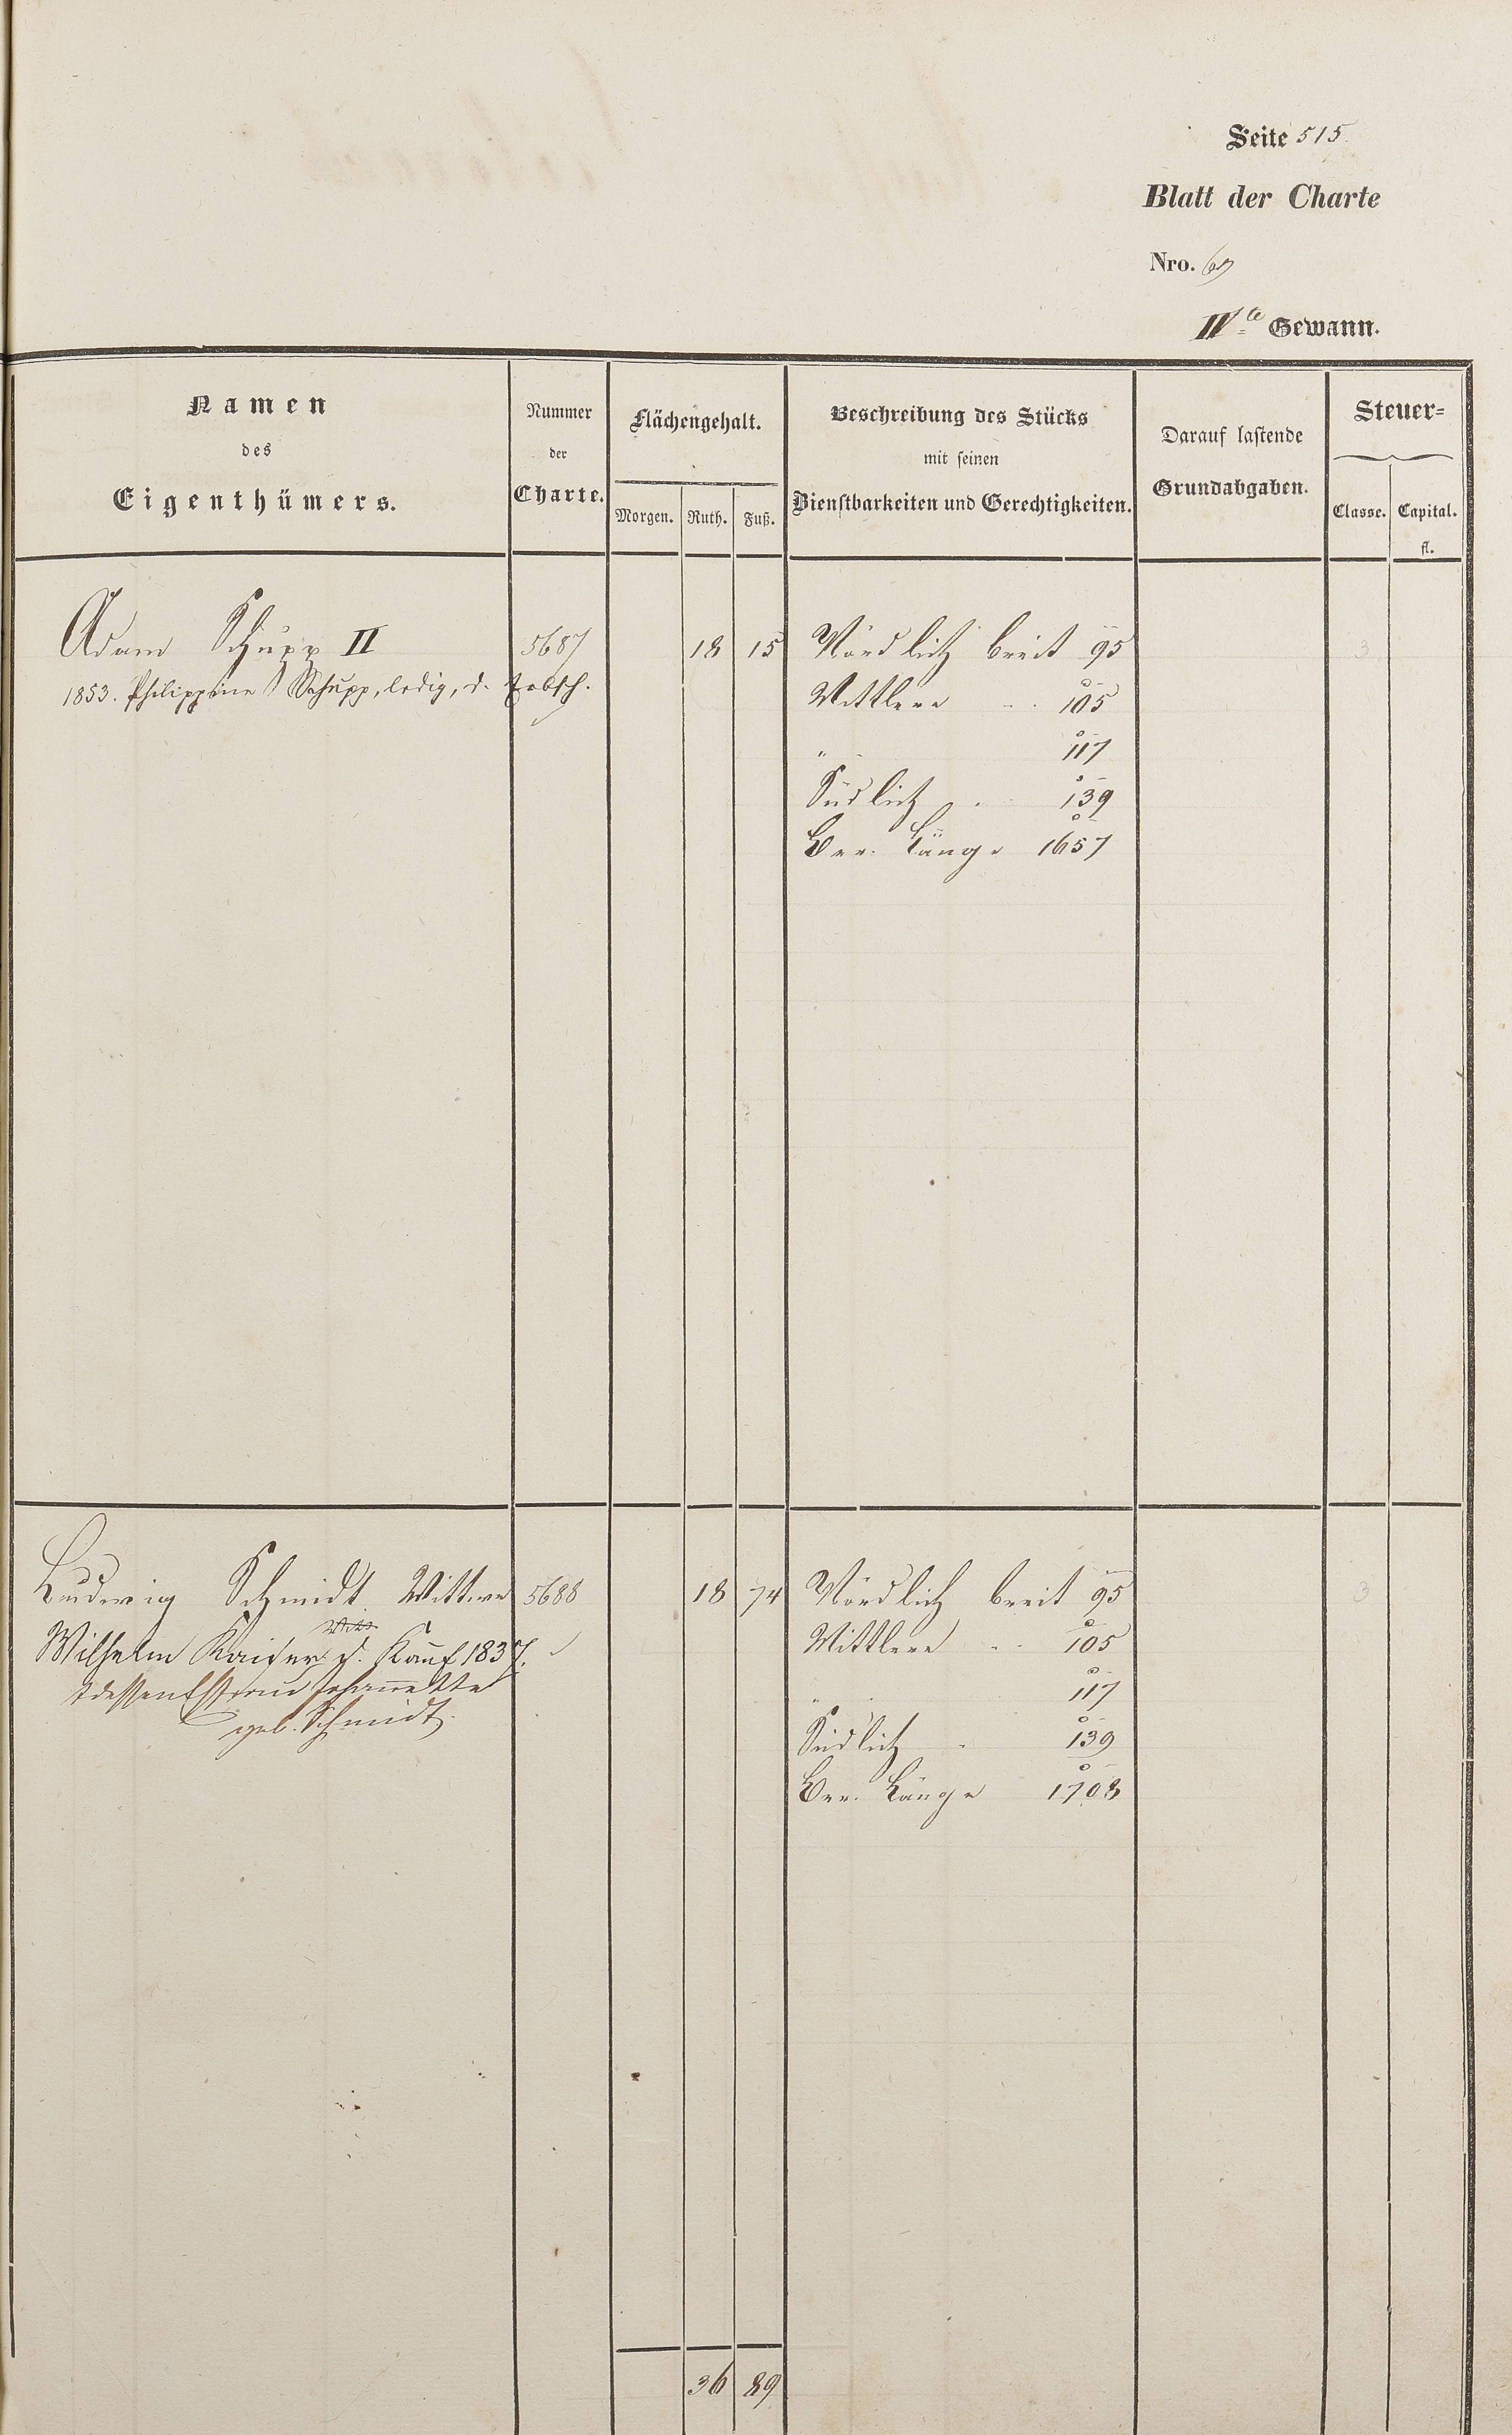 Seite 515
Blatt der Charte
Nro. 69
IVte Gewann.
Namen
des
Eigenthümers.
Nummer
der
Charte.
Flächengehalt.
Morgen. Ruth. Fuß.
Beschreibung des Stücks
mit seinen
Dienstbarkeiten und Gerechtigkeiten.
Darauf lastende
Grundabgaben.
Steuer-
Classe. Capital.
fl.
Adam Schupp II 5687 18 15 Nördlich breit 95 3
1853. Philippine Schupp, ledig, d. Erbsch.
Mittlere 105
" 117
Südlich 139
Ber. Länge 1657
Ludwig Schmidt Wittwe 5688 18 74 Nördlich breit 95 3
Wilhelm Kaiser d. Kauf 1837.
Mittlere 105
dessen Ehefrau Johannette
" 117
geb. Schmidt.
Südlich 139
Ber. Länge 1708
36 89